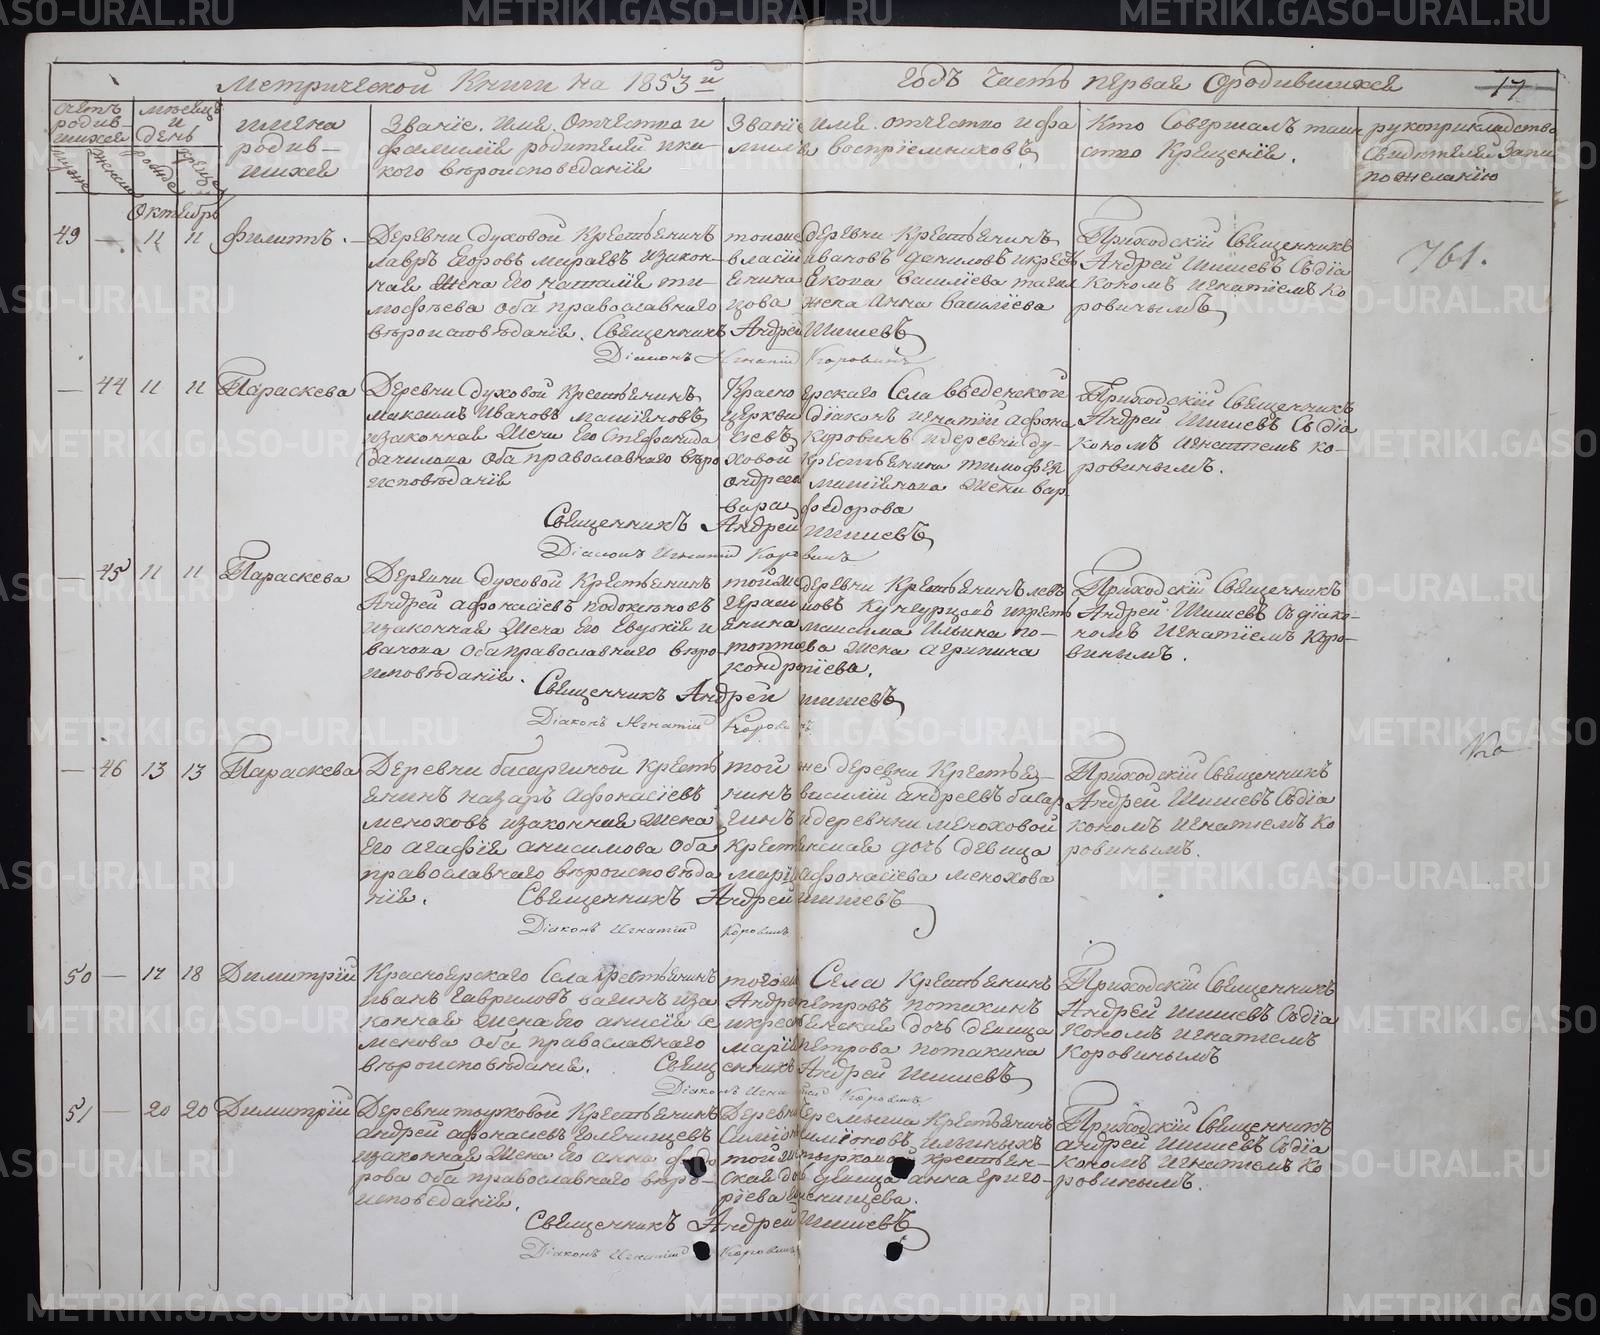 Метрической Книги на 1853й годъ Часть первая О родившихся
17
Счетъ родив-шихся
Мѣсяцъ и день
Имена родив-шихся
Званіе. Имя. Отчество и фамилія родителей и ка-кого вѣроисповеданія
Званіе имя. отчество и фамилія воспріемниковъ
Кто Совершалъ таинство Крещенія.
рукоприкладство свидѣтелей записи по желанію
Октябрь
49 — 11 11 Филиппъ. —
Деревни Духовой Крестьянинъ
Лавръ Егоровъ и закон-
ная Жена Его Наталія Ти-
мофѣева оба православнаго
вѣроисповѣданія.
тоиже деревни Крестьянинъ
Ивановъ Даниловъ и крестьянина
Василіева
жена Анна Василіева
Приходскій Священникъ
Андрей Шишевъ Съ діа
кономъ Игнатіемъ Ко
ровинымъ
761.
Священникъ Андрей Шишевъ
Діаконъ Игнатій Коровинъ
— 44 11 11 Параскева
Деревни Духовой Крестьянинъ
Максимъ Ивановъ
и законная Жена Его Стефанида
Данилова оба православнаго вѣро
исповѣданія
Красноярскаго Села Введенской
церкви діаконъ Игнатій Афона
сіевъ Коровинъ и деревни Ду-
ховой Крестьянина Тимофея
Андреева Жена Вар
вара Федорова
Приходскій Священникъ
Андрей Шишевъ Съ діа
кономъ Игнатіемъ Ко-
ровинымъ.
Священникъ Андрей Шишевъ
Діаконъ Игнатій Коровинъ
— 45 11 11 Параскева
Деревни Духовой Крестьянинъ
Андрей Афонасіевъ
и законная Жена Его Евдокія И
ванова оба православнаго вѣро-
исповѣданія.
той же деревни Крестьянинъ Левъ
Герасимовъ и крестьянина
Максима Ильина
жена Агрипина
Кондратіева.
Приходскій Священникъ
Андрей Шишевъ Съ діако-
номъ Игнатіемъ Коро-
винымъ.
Священникъ Андрей Шишевъ
Діаконъ Игнатій Коровинъ
— 46 13 13 Параскева
Деревни Басаргиной Кресть
янинъ Назаръ Афонасіевъ
Меноховъ и законная Жена
Его Агафія Анисимова Оба
православнаго вѣроисповѣда
нія.
той же деревни Крестья-
нинъ Василій Андреевъ Басар
гинъ и деревни Меноховой
Крестьянская дочь девица
Марія Афонасіева Менохова
Приходскій Священникъ
Андрей Шишевъ Съ діа
кономъ Игнатіемъ Ко
ровинымъ.
Священникъ Андрей Шишевъ
Діаконъ Игнатій Коровинъ
50 — 17 18 Димитрій
Красноярскаго Села Крестьянинъ
Иванъ Гавриловъ Вагинъ и за
конная Жена Его Анисія Се
менова Оба православнаго
вѣроисповѣданія.
того же Села Крестьянинъ
Андрей Петровъ Потакинъ
и крестьянская дочь девица
Марія Петрова Потакина
Приходскій Священникъ
Андрей Шишевъ Съ діа
кономъ Игнатіемъ
Коровинымъ
Священникъ Андрей Шишевъ
Діаконъ Игнатій Коровинъ
51 — 20 20 Димитрій
Крестьянинъ
Андрей Афонасіевъ Голенищевъ
и законная Жена Его Анна Федо
рова оба православнаго вѣро-
исповеданія.
Деревни Черемыша Крестьянинъ
Симіонъ Симіоновъ Ильиныхъ
той же крестьян-
ская дочь девица Анна Григо-
ріева Голенищева.
Приходскій Священникъ
Андрей Шишевъ Съ діа
кономъ Игнатіемъ Ко
ровинымъ.
Священникъ Андрей Шишевъ
Діаконъ Игнатій Коровинъ
METRIKI.GASO-URAL.RU